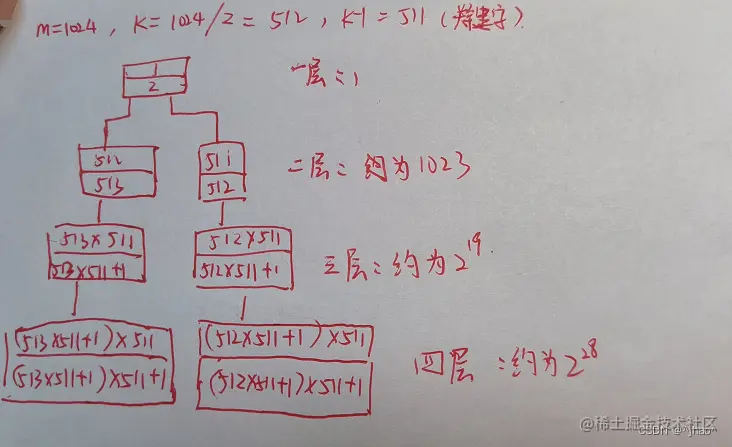 m=1024, K=1024/2=512, K-1=511(关键字)
1
2
一层:1
512
513
511
512
二层:约为1023
513×511
513×511+1
512×511
512×511+1
三层:约为2^19
(513×511+1)×511
(513×511+1)×511+1
(512×511+1)×511
(512×511+1)×511+1
四层:约为2^28
@稀土掘金技术社区